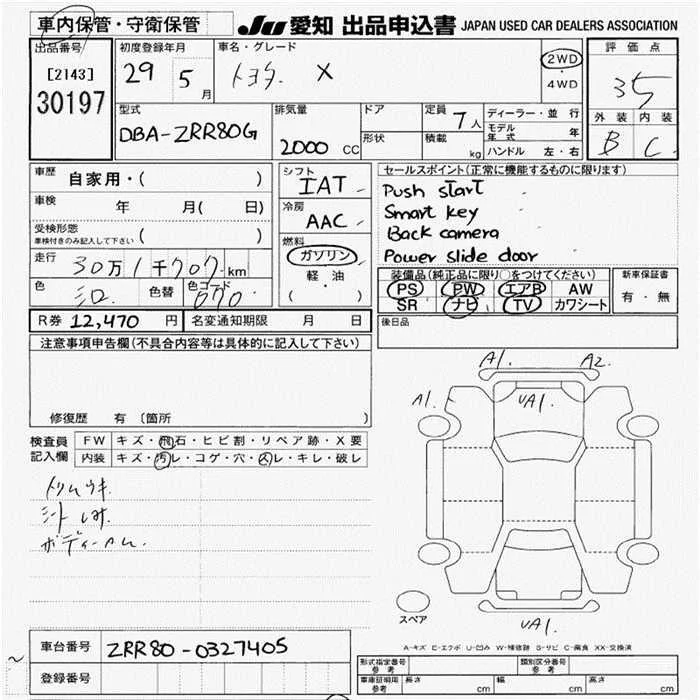 車内保管・守衛保管
JU 愛知 出品申込書 JAPAN USED CAR DEALERS ASSOCIATION
出品番号
[2143]
30197
初度登録年月
29 5月
車名・グレード
トヨタ X
2WD
・
4WD
評価点
35
外装 内装
B C
型式
DBA-ZRR80G
排気量
2000 CC
ドア
形状
定員 7人
積載 kg
ディーラー・並行
モデル年式 年
ハンドル 左・右
車歴 自家用・( )
車検 年 月( 日)
受検形態
車検付きのみ記入して下さい ( )
走行 30万1千707km
色 シロ 色替 色コード 070
シフト
IAT
冷房
AAC
燃料
ガソリン
軽・油
( )
セールスポイント(正常に機能するものに限ります)
Push start
Smart key
Back camera
Power slide door
装備品(純正品に限り○をつけてください)
PS PW エアB AW
SR ナビ TV カワシート
新車保証書
有・無
R券 12,470 円 名変通知期限 月 日
後日品
注意事項申告欄(不具合内容等は具体的に記入して下さい)
修復歴 有 〔箇所 〕
検査員
記入欄
FW キズ・飛石・ヒビ割・リペア跡・X要
内装 キズ・汚レ・コゲ・穴・スレ・キレ・破レ
トリムウキ
シートしみ
A1. A2.
A1. UA1.
UA1.
スペア
A-キズ E-エクボ U-凹み W-補修跡 S-サビ C-腐食 XX-交換済
車台番号 ZRR80-0327405
登録番号
型式指定番号 参考
類別区分番号 参考
車庫証明用 参考 長さ cm 幅 cm 高さ cm